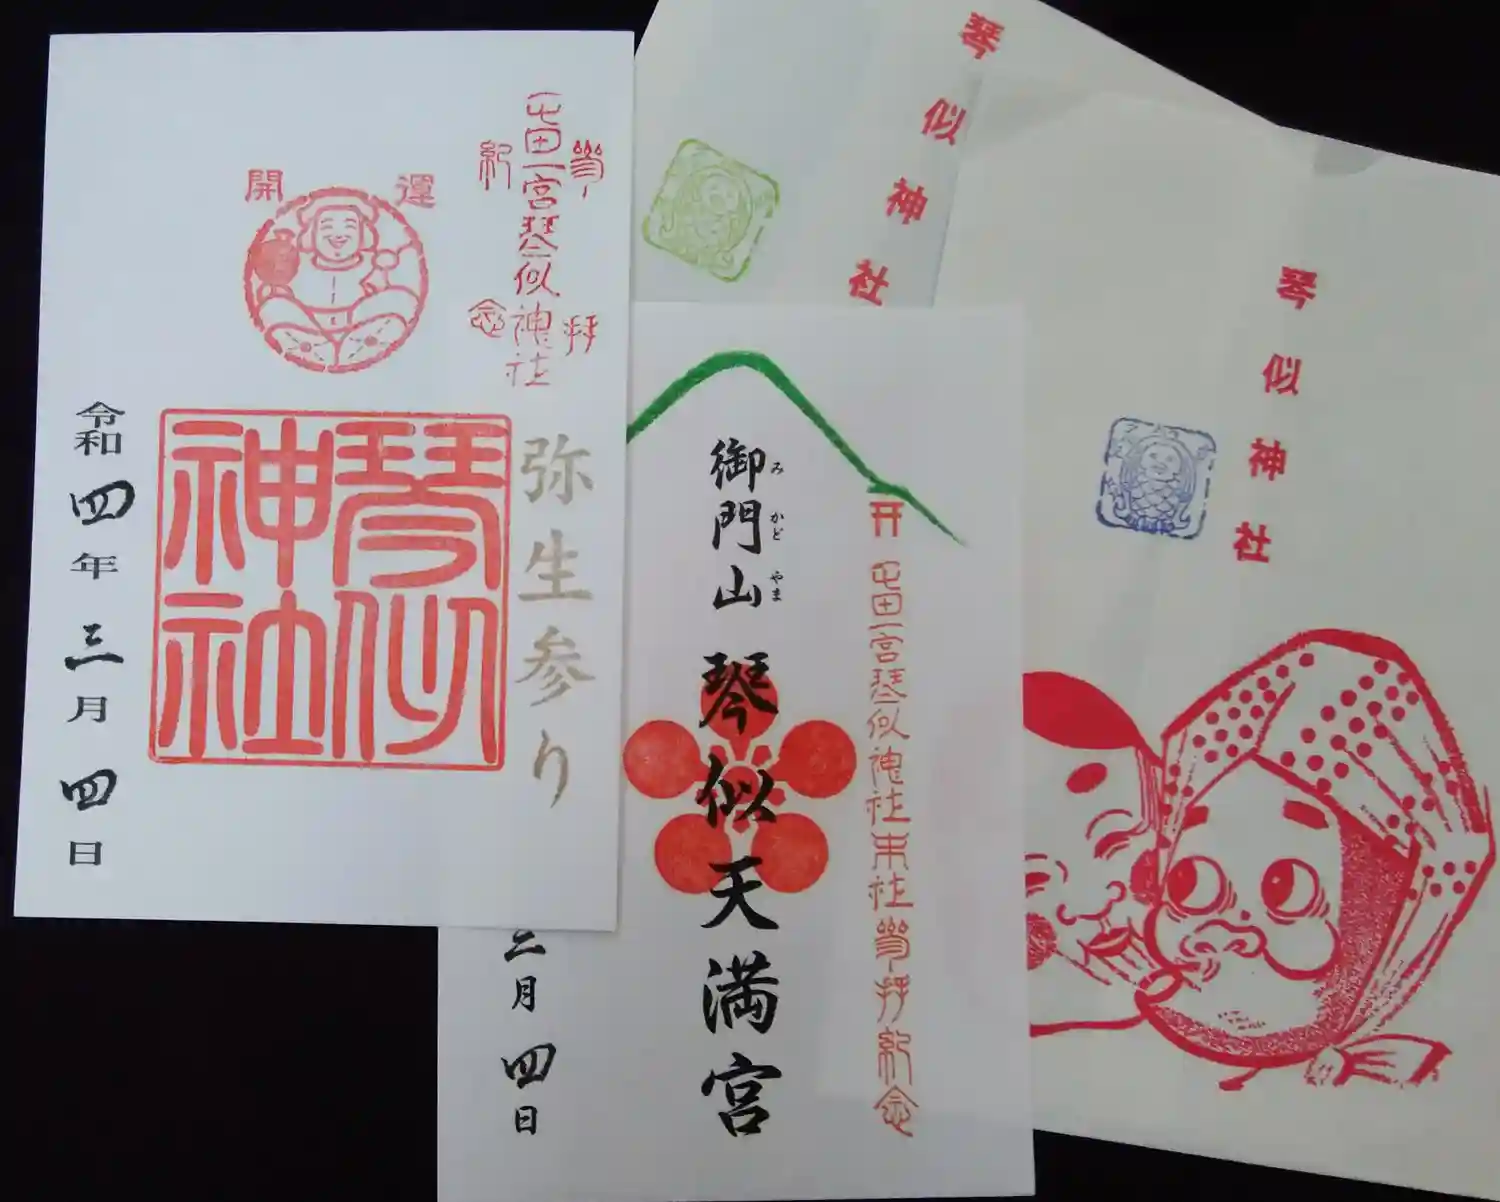 開運
屯田一宮琴似神社
参拝
紀念
琴似神社
弥生参り
令和四年三月四日
琴似神社
御門山 琴似天満宮
みかどやま
屯田一宮琴似神社末社参拝紀念
三月四日
琴似神社